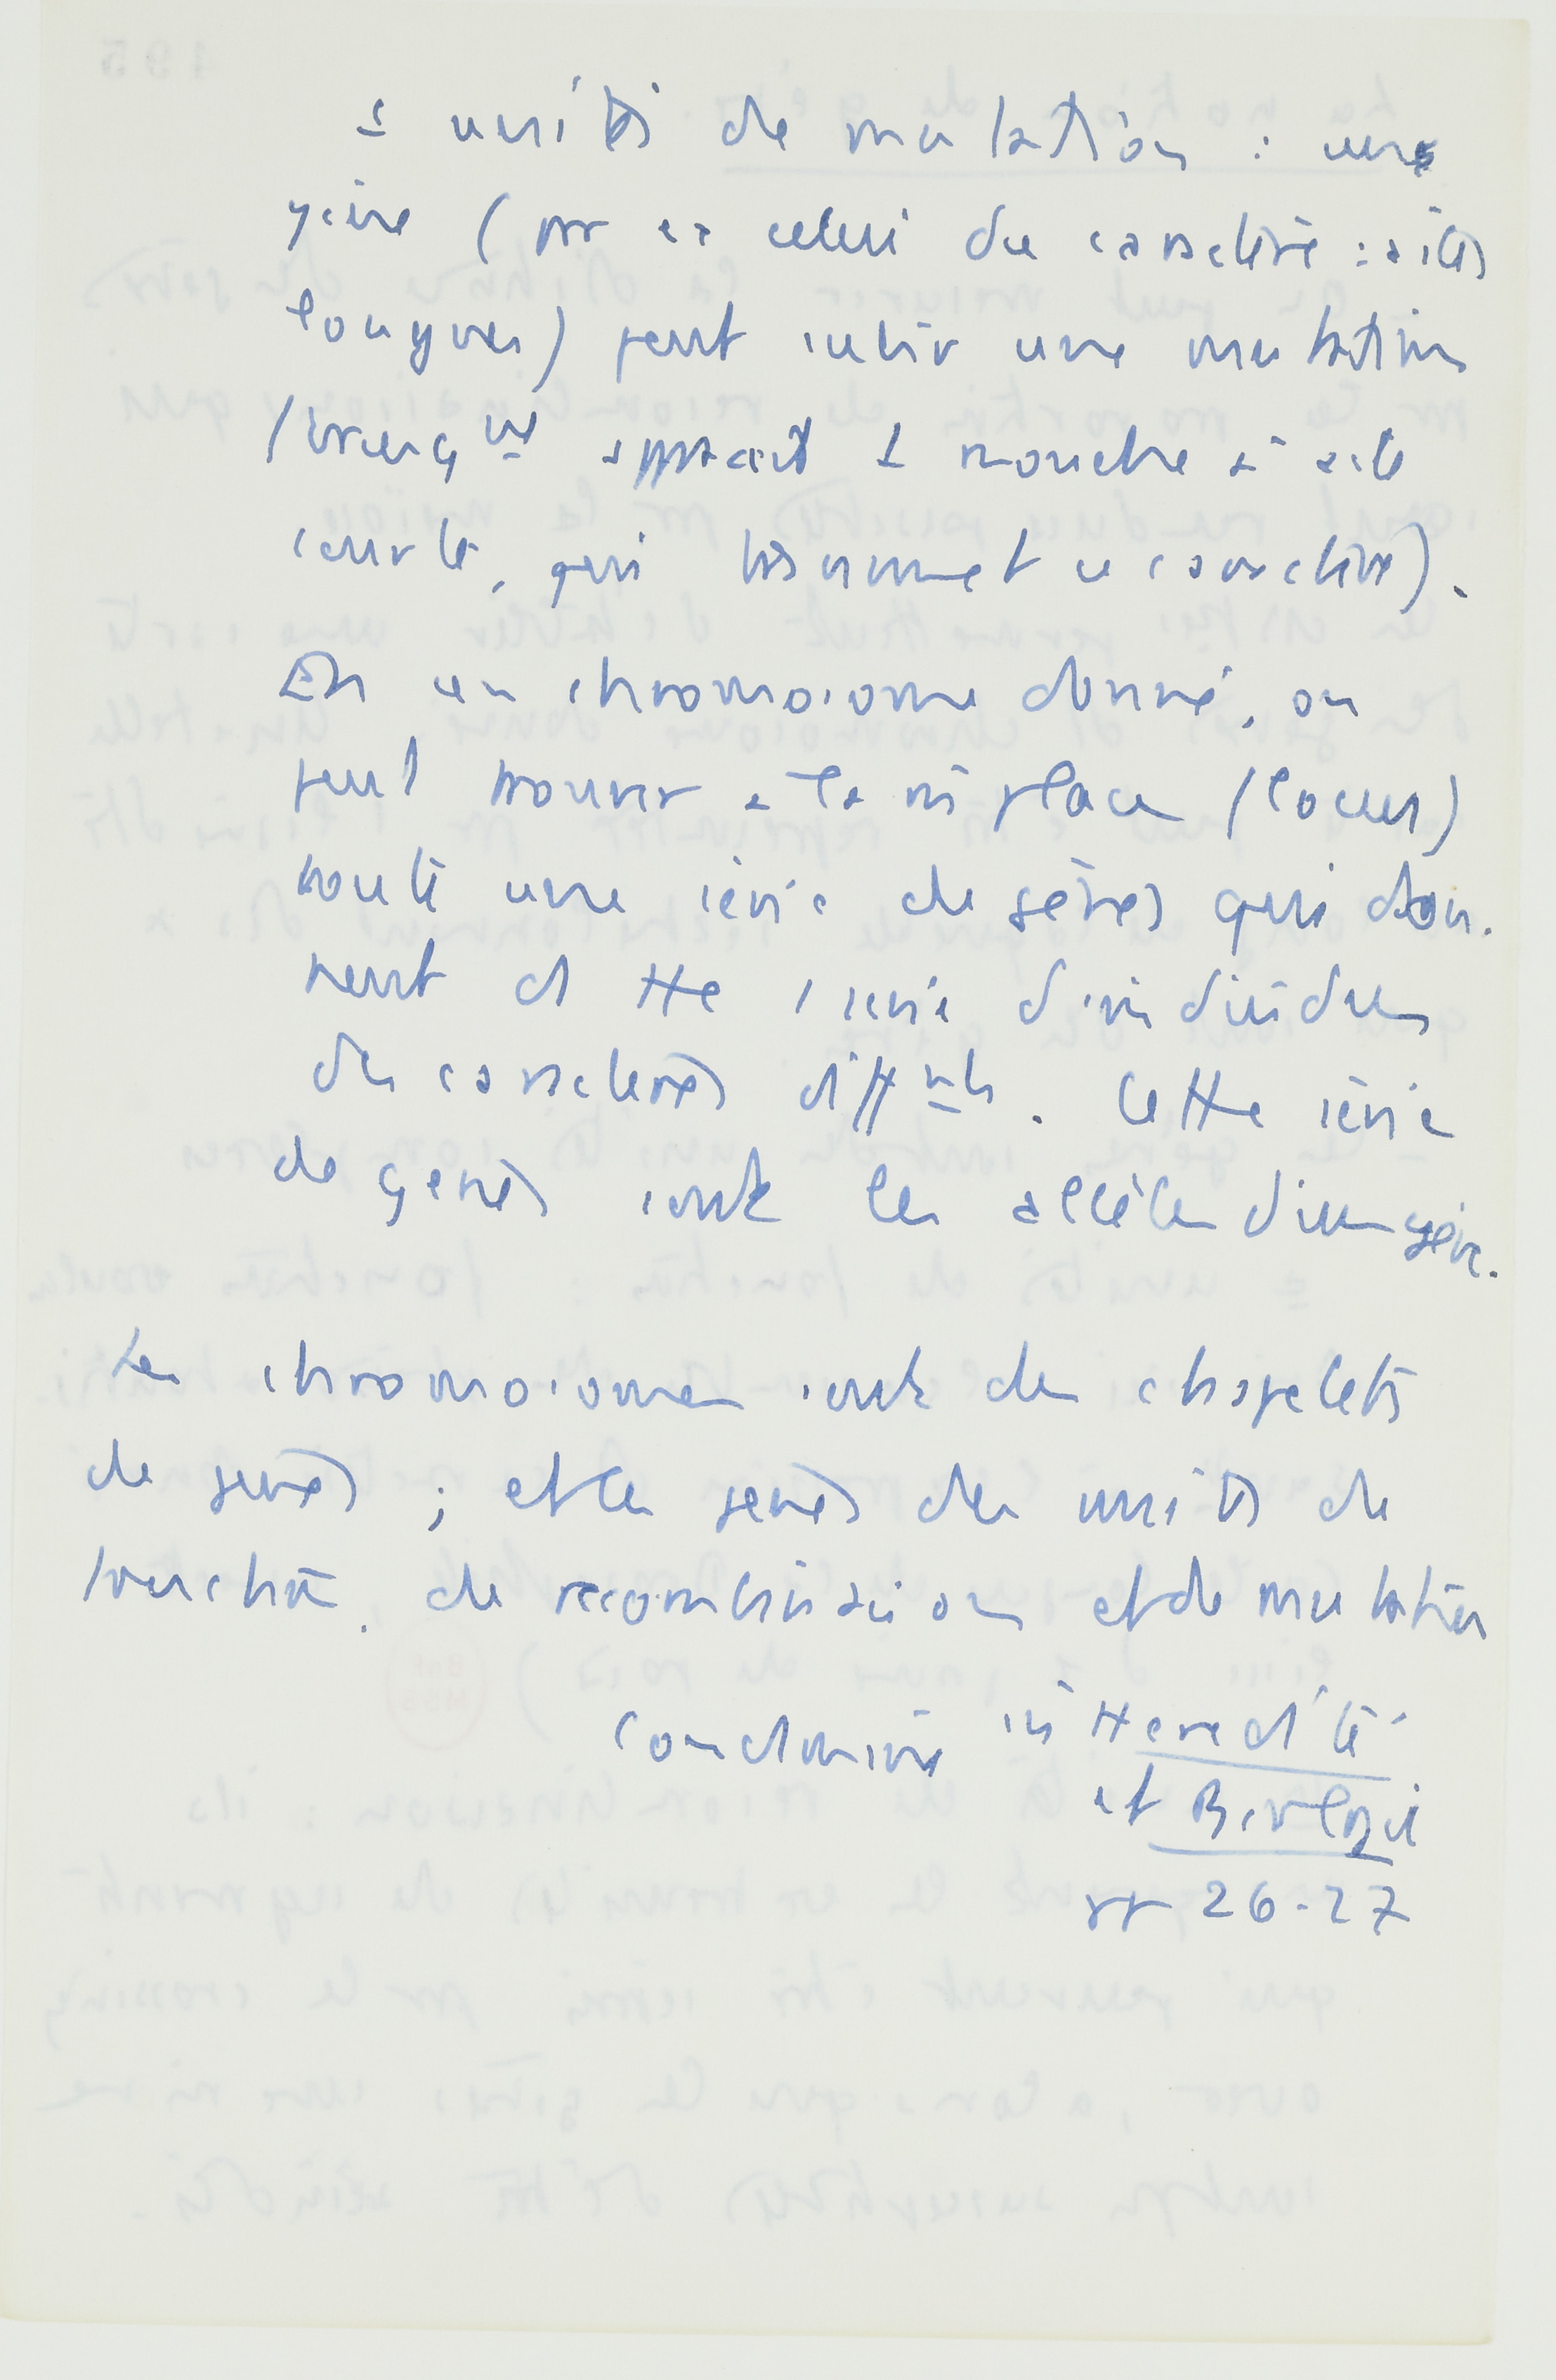 = unités de mutation : un
gène (par ex celui du caractère : ailes
longues) peut subir une mutation
(brusq^ut apparaît 1 mouche à aile
courte, qui transmet ce caractère).
En un chromosome donné, on
peut trouver à la m place (locus)
toute une série de gènes qui don-
nent ds tte 1 série d'individus
des caractères diff^nts. Cette série
de gènes sont les allèles d'un gène.
Les chromosomes sont des chapelets
de gènes ; et les gènes des unités de
fonction, de recombinaison et de mutation
in Heredité
et Biologie
pp 26-27